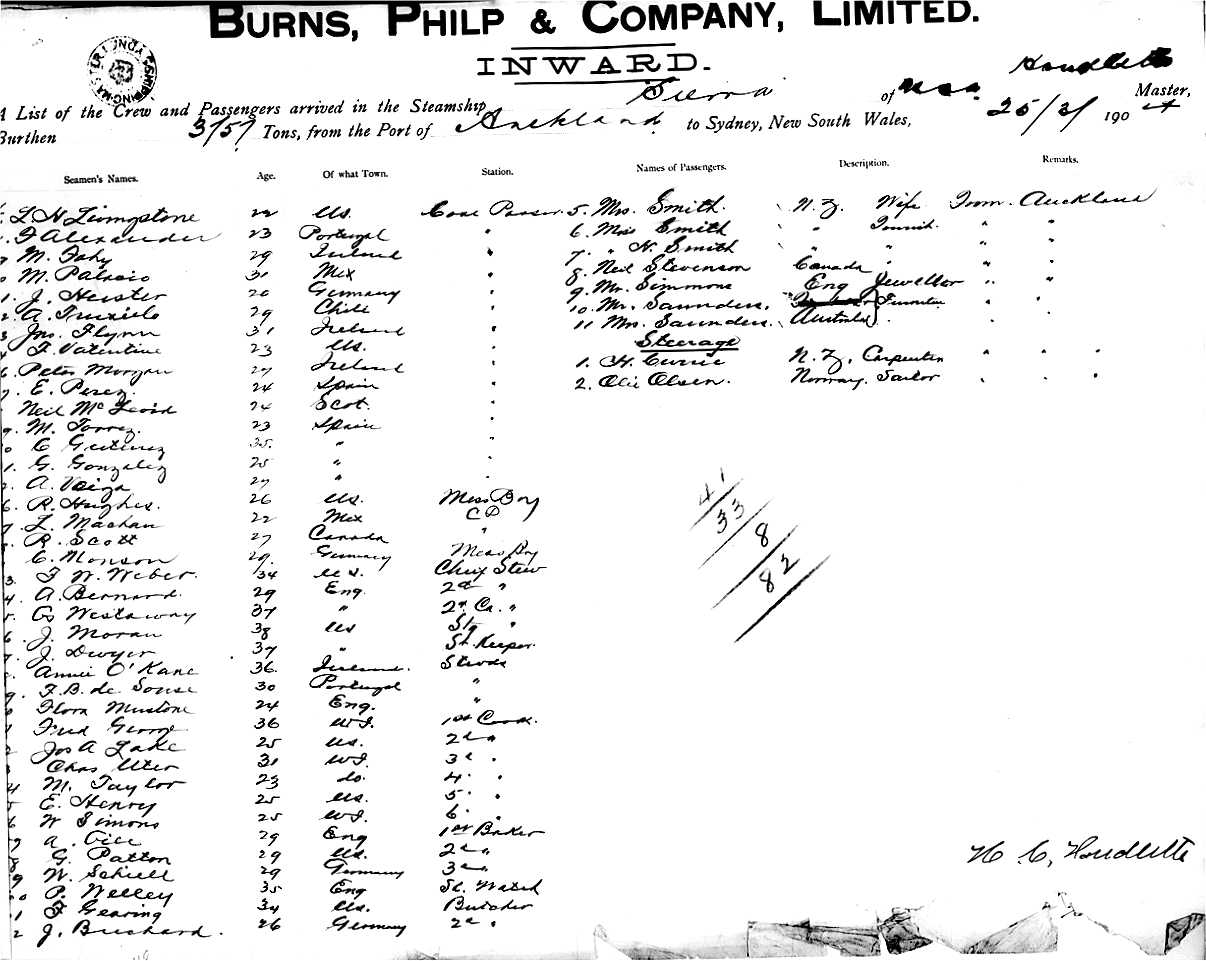 BURNS, PHILP & COMPANY, LIMITED.
INWARD.
A List of the Crew and Passengers arrived in the Steamship Sierra of USA Houdlette Master,
Burthen 3157 Tons, from the Port of Auckland to Sydney, New South Wales, 25/3/1904
Seamen's Names. Age. Of what Town. Station. Names of Passengers. Description. Remarks.
L. H Livingstone 22 US. Coal Passer 5. Mrs. Smith N.Z. Wife From Auckland
F Alexander 23 Portugal " 6. Miss Smith " Tourist " "
M. Fahy 29 Ireland " 7. " N. Smith " " " "
M. Palacio 31 Mex " 8. Neil Stevenson Canada " " "
1. J. Heister 20 Germany " 9. Mr. Simmons Eng Jeweller " "
2 A. Truxillo 29 Chile " 10. Mr. Saunders.
3 Jno. Flynn 31 Ireland " 11 Mrs. Saunders. Australia
4 F. Valentine 23 US. " Steerage
6. Peter Morgan 27 Ireland " 1. H. Currie N.Z. Carpenter " " "
7. E. Perez 24 Spain " 2. Ole Olsen. Norway. Sailor " " "
Neil McLeod 24 Scot. "
9. M. Torrez. 23 Spain "
0 C Gutierrez 35. " "
1. G. Gonzalez 25 " "
A. Veiga 27 "
6. R. Hughes. 26 US. Mess Boy
7. L. Machan 22 Mex C P
R. Scott 27 Canada "
C. Monson 29. Germany Mess Boy
3. F. W. Weber. 34 U S. Chief Stew
4. A. Bernard. 29 Eng. 2d "
5. G Westaway 37 " 2d Ca. "
6. J. Moran 38 US Stg "
7. J. Dwyer 37 " St. Keeper.
Annie O'Kane 36. Ireland. Stewds
9. F. B. de Souse 30 Portugal "
Flora Mustone 24 Eng. "
Fred George 36 W I. 1st Cook.
2 Jos A Lake 25 US. 2d "
Chas Uter 31 W I. 3d "
4 M. Taylor 23 do. 4. "
5 E. Henry 25 US. 5. "
6 W Simons 25 W I. 6. "
7 A. Vice 29 Eng 1st Baker
8 G. Patton 29 US. 2d "
9 W. Schiell 29 Germany 3d "
P. Welley 35 Eng Sl. Watch
1 F Gearing 34 US. Butcher
2 J. Buschard. 26 Germany 2d "
41
33
8
82
H. C. Houdlette